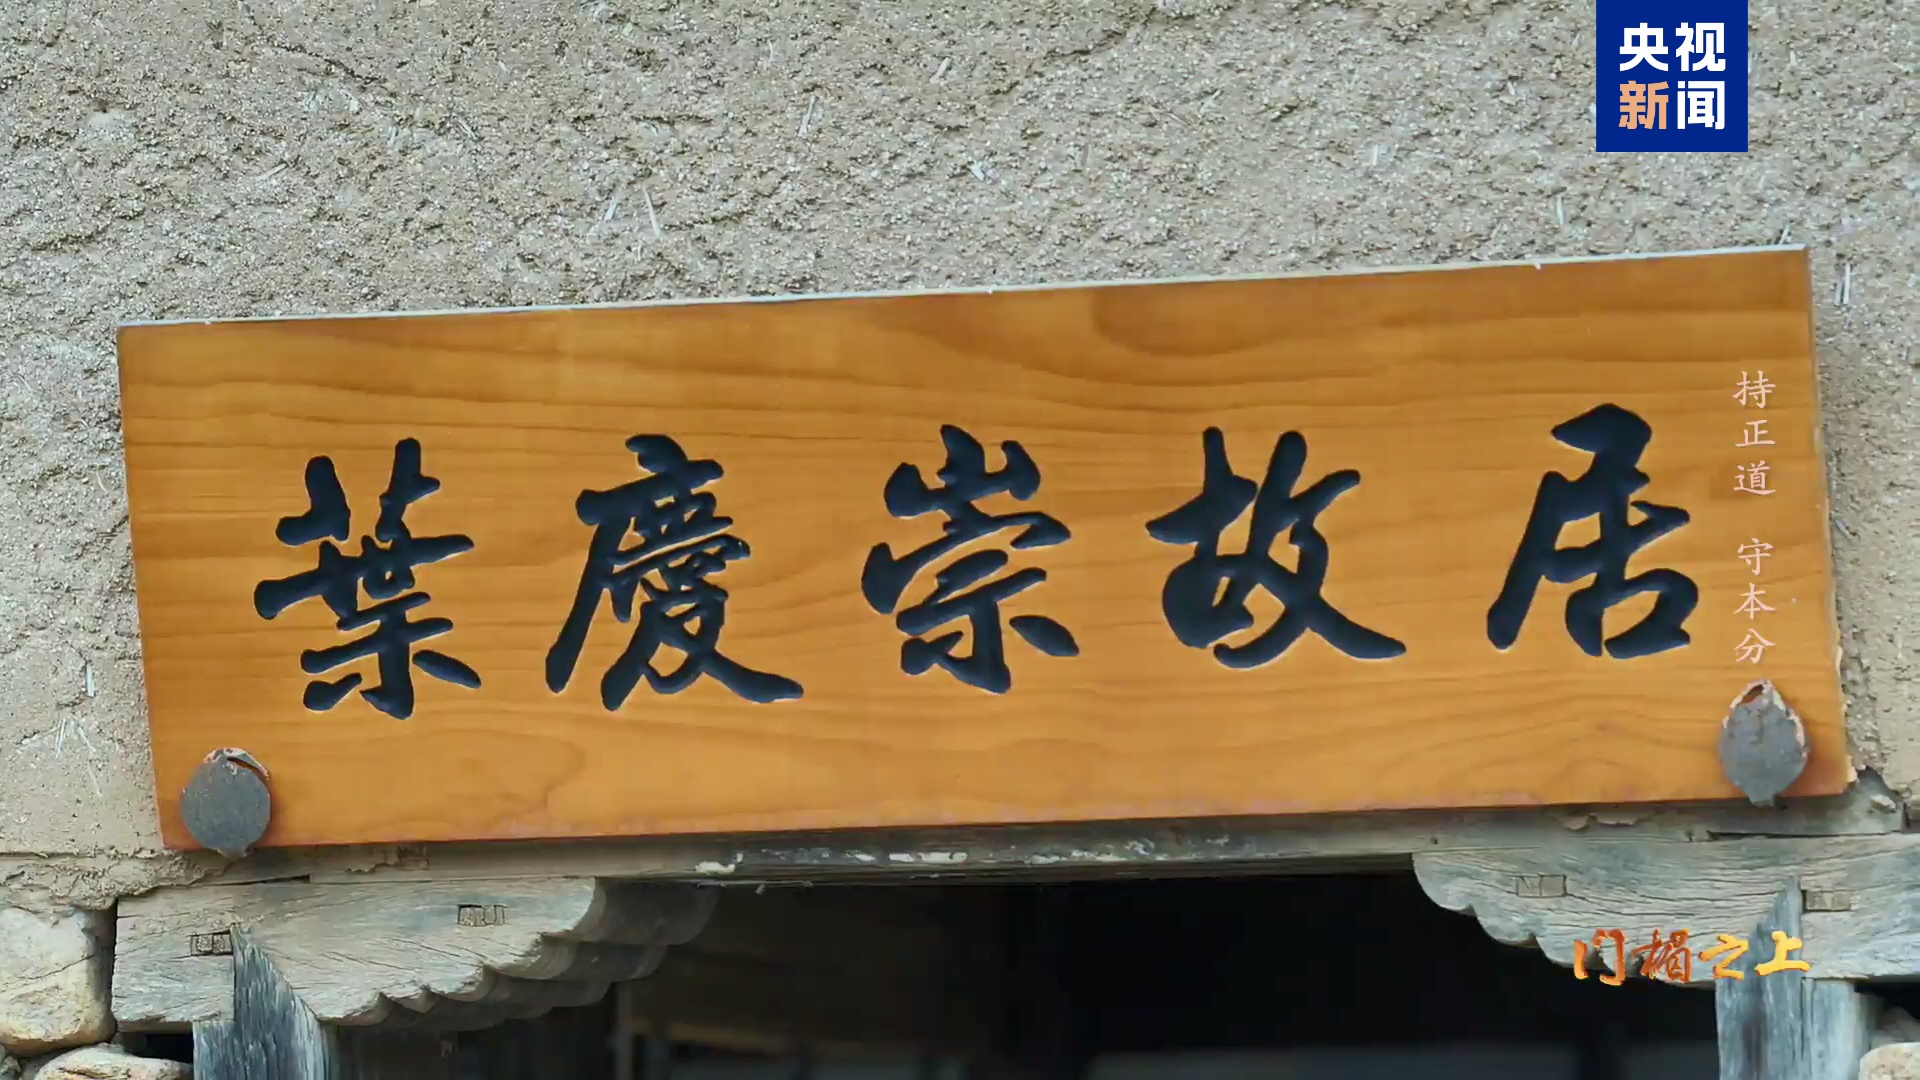 央视
新闻
葉慶崇故居
持正道 守本分
门楣之上